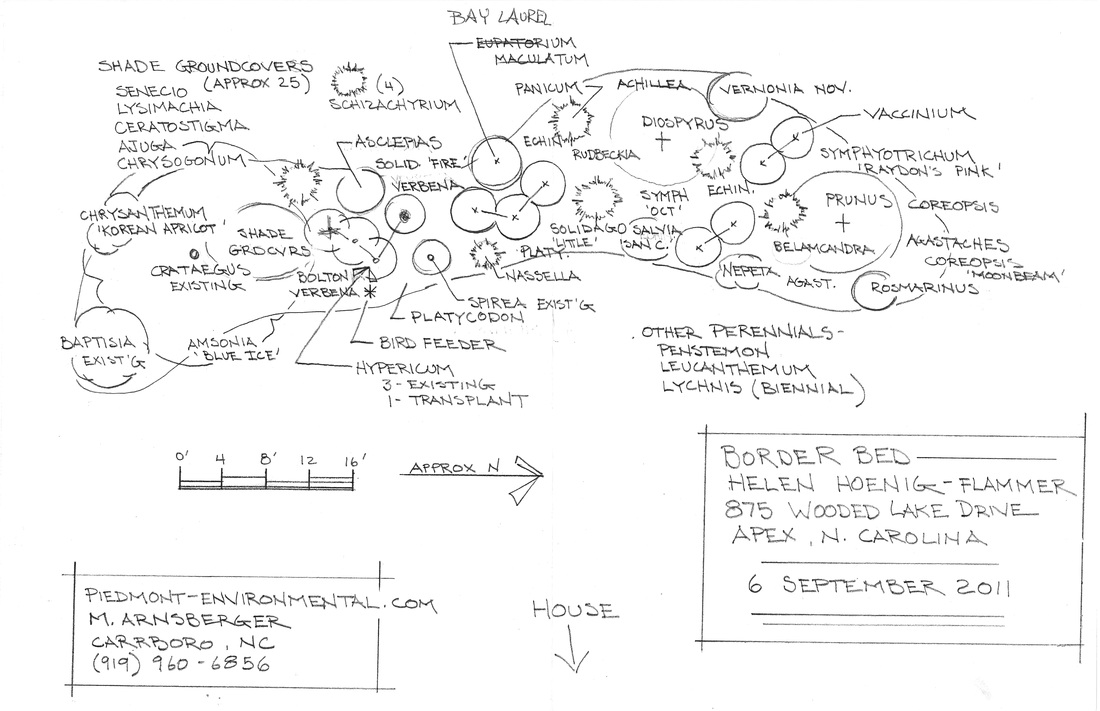 BAY LAUREL
EUPATORIUM
MACULATUM
SHADE GROUNDCOVERS
(APPROX 25)
SENECIO
LYSIMACHIA
CERATOSTIGMA
AJUGA
CHRYSOGONUM
(4)
SCHIZACHYRIUM
PANICUM
ACHILLEA
VERNONIA NOV.
VACCINIUM
DIOSPYRUS
ASCLEPIAS
SOLID 'FIRE'
ECHIN
RUDBECKIA
SYMPHYOTRICHUM
'RAYDON'S PINK'
VERBENA
ECHIN.
SYMPH
'OCT'
PRUNUS
COREOPSIS
CHRYSANTHEMUM
'KOREAN APRICOT'
SHADE
GRDCVRS
SOLIDAGO
'LITTLE'
SALVIA
'SAN C.'
BELAMCANDRA
AGASTACHES
COREOPSIS
'MOONBEAM'
PLATY.
CRATAEGUS
EXISTING
BOLTON
VERBENA
NASSELLA
NEPETA
AGAST.
ROSMARINUS
SPIREA EXIST'G
PLATYCODON
BAPTISIA
EXIST'G
AMSONIA
'BLUE ICE'
BIRD FEEDER
HYPERICUM
3- EXISTING
1- TRANSPLANT
OTHER PERENNIALS-
PENSTEMON
LEUCANTHEMUM
LYCHNIS (BIENNIAL)
0' 4 8' 12 16'
APPROX N
BORDER BED
HELEN HOENIG-FLAMMER
875 WOODED LAKE DRIVE
APEX, N. CAROLINA
6 SEPTEMBER 2011
PIEDMONT-ENVIRONMENTAL.COM
M. ARNSBERGER
CARRBORO, NC
(919) 960-6856
HOUSE